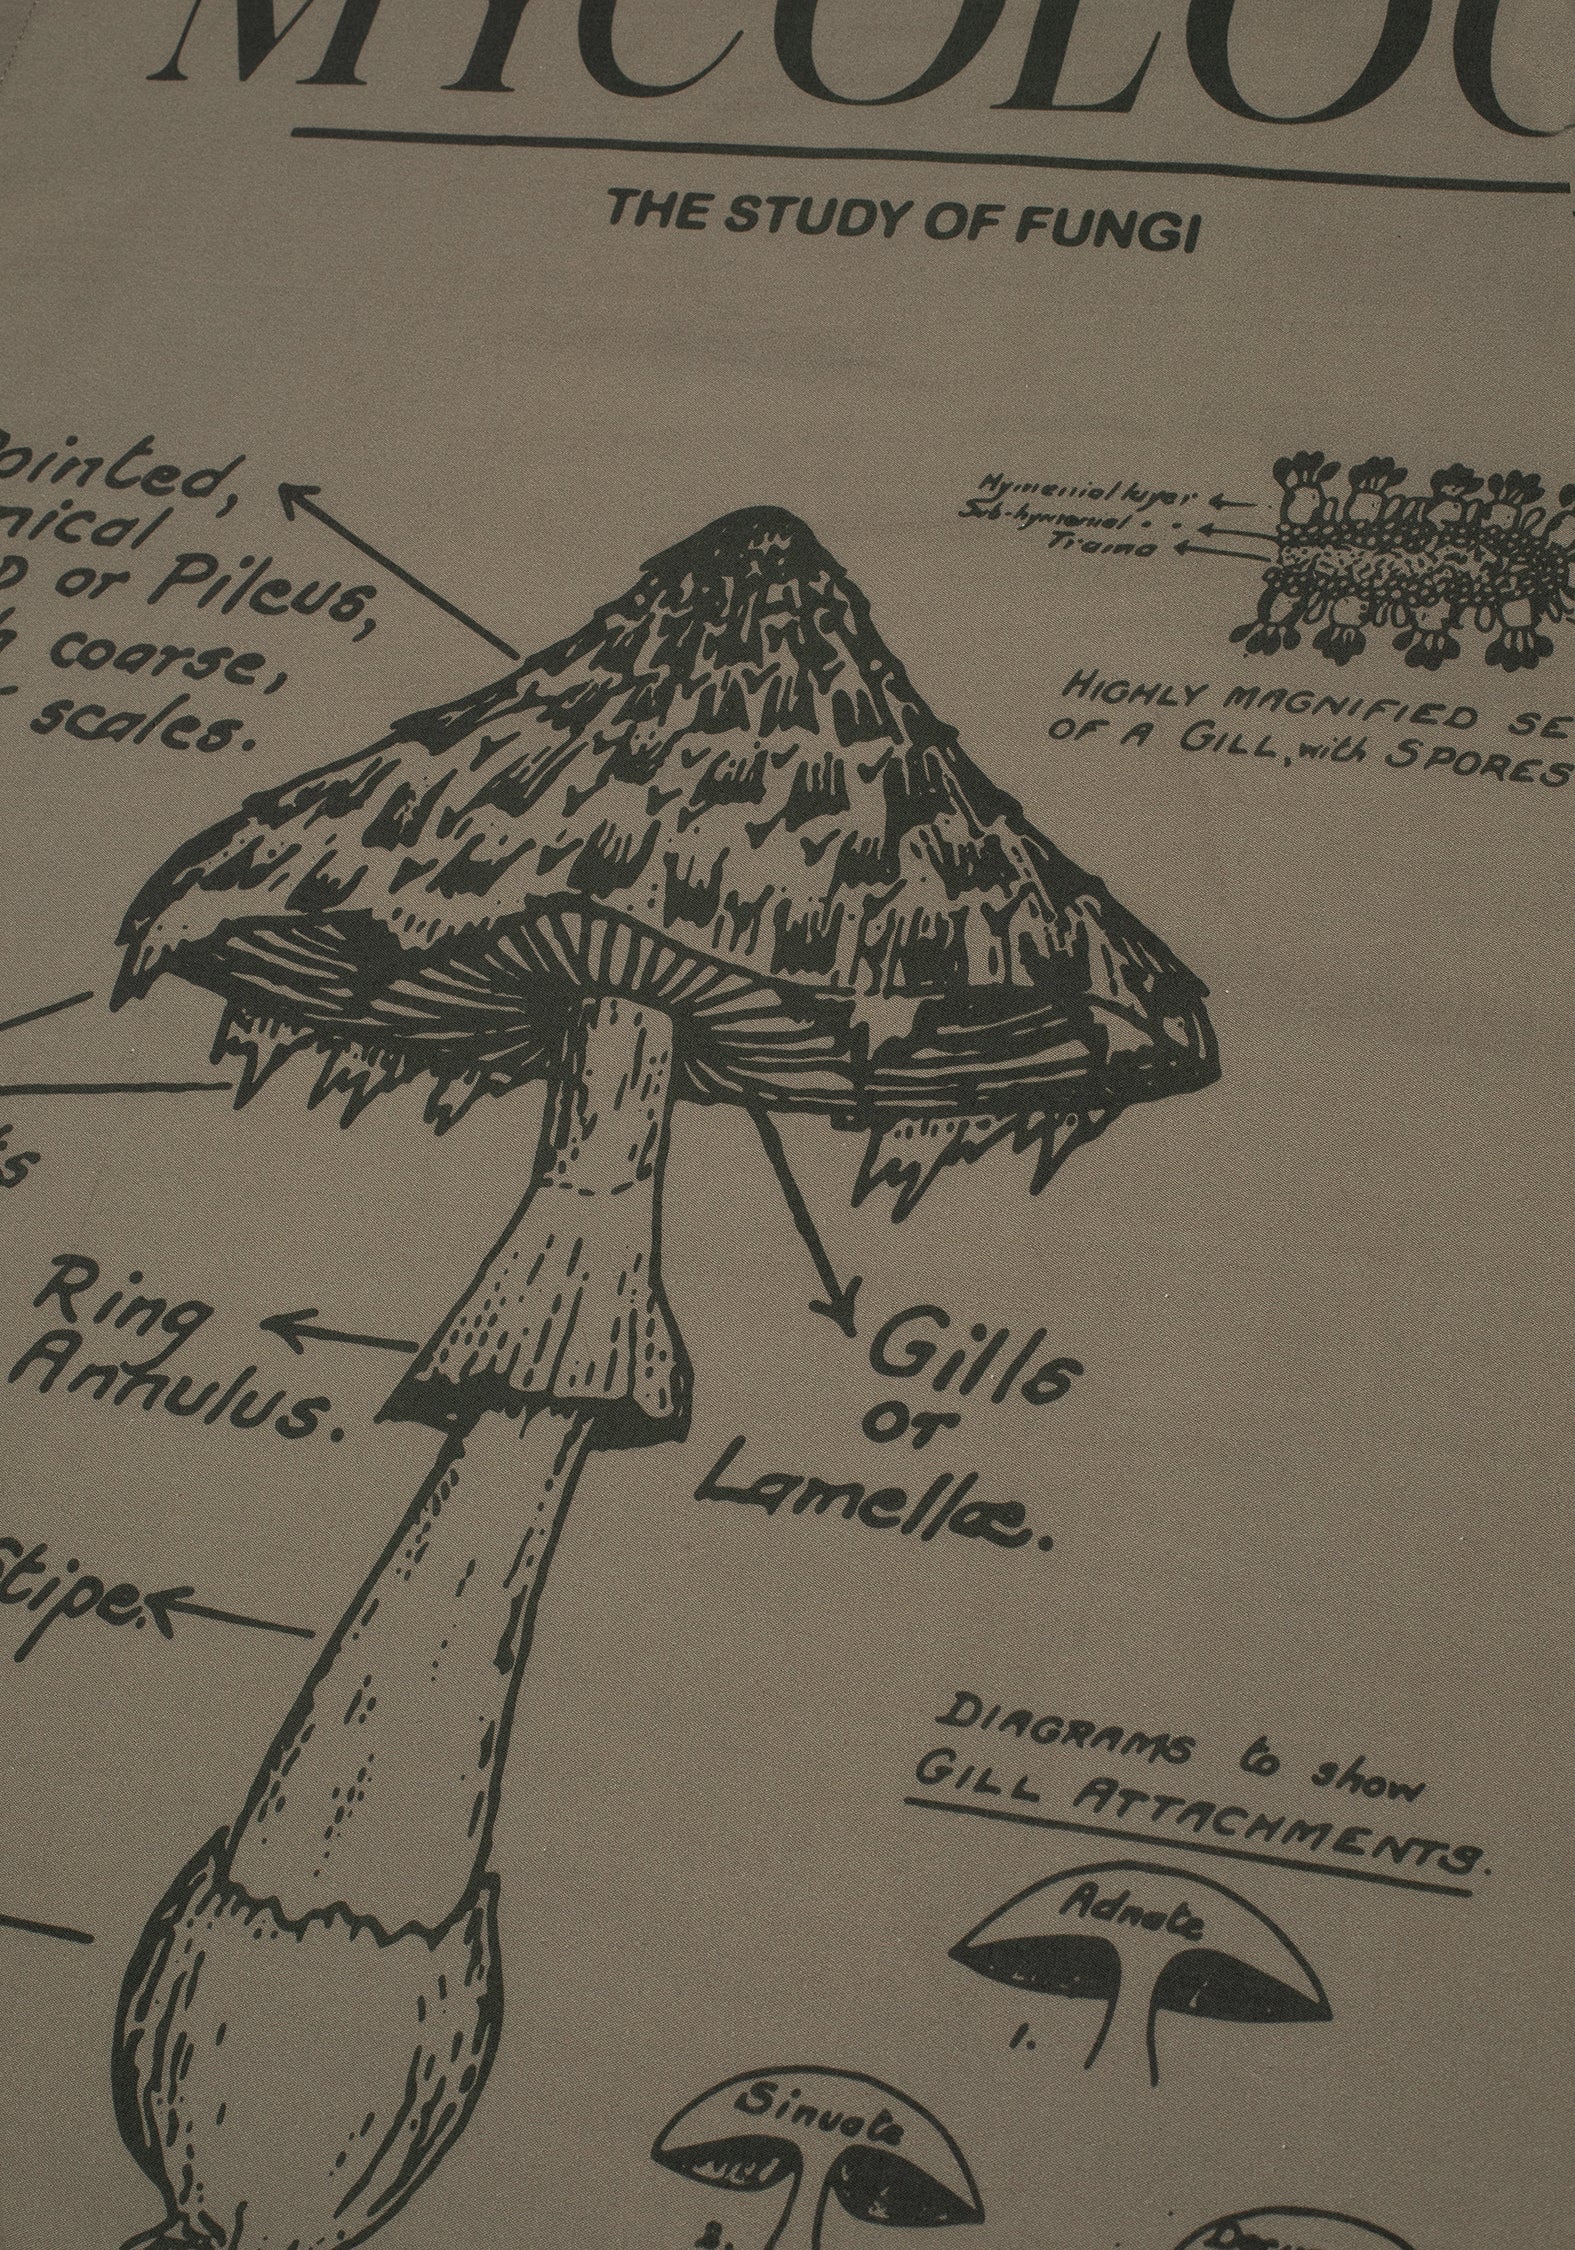 MYCOLOG
THE STUDY OF FUNGI
Pointed,
nical
or Pileus,
coarse,
scales.
Hymenial layer
Sub-hymenial . .
Trama
HIGHLY MAGNIFIED SE
OF A GILL, with SPORES
ts
Ring
Annulus.
Gills
or
Lamellæ.
Stipe.
DIAGRAMS to show
GILL ATTACHMENTS.
Adnate
1.
Sinuate